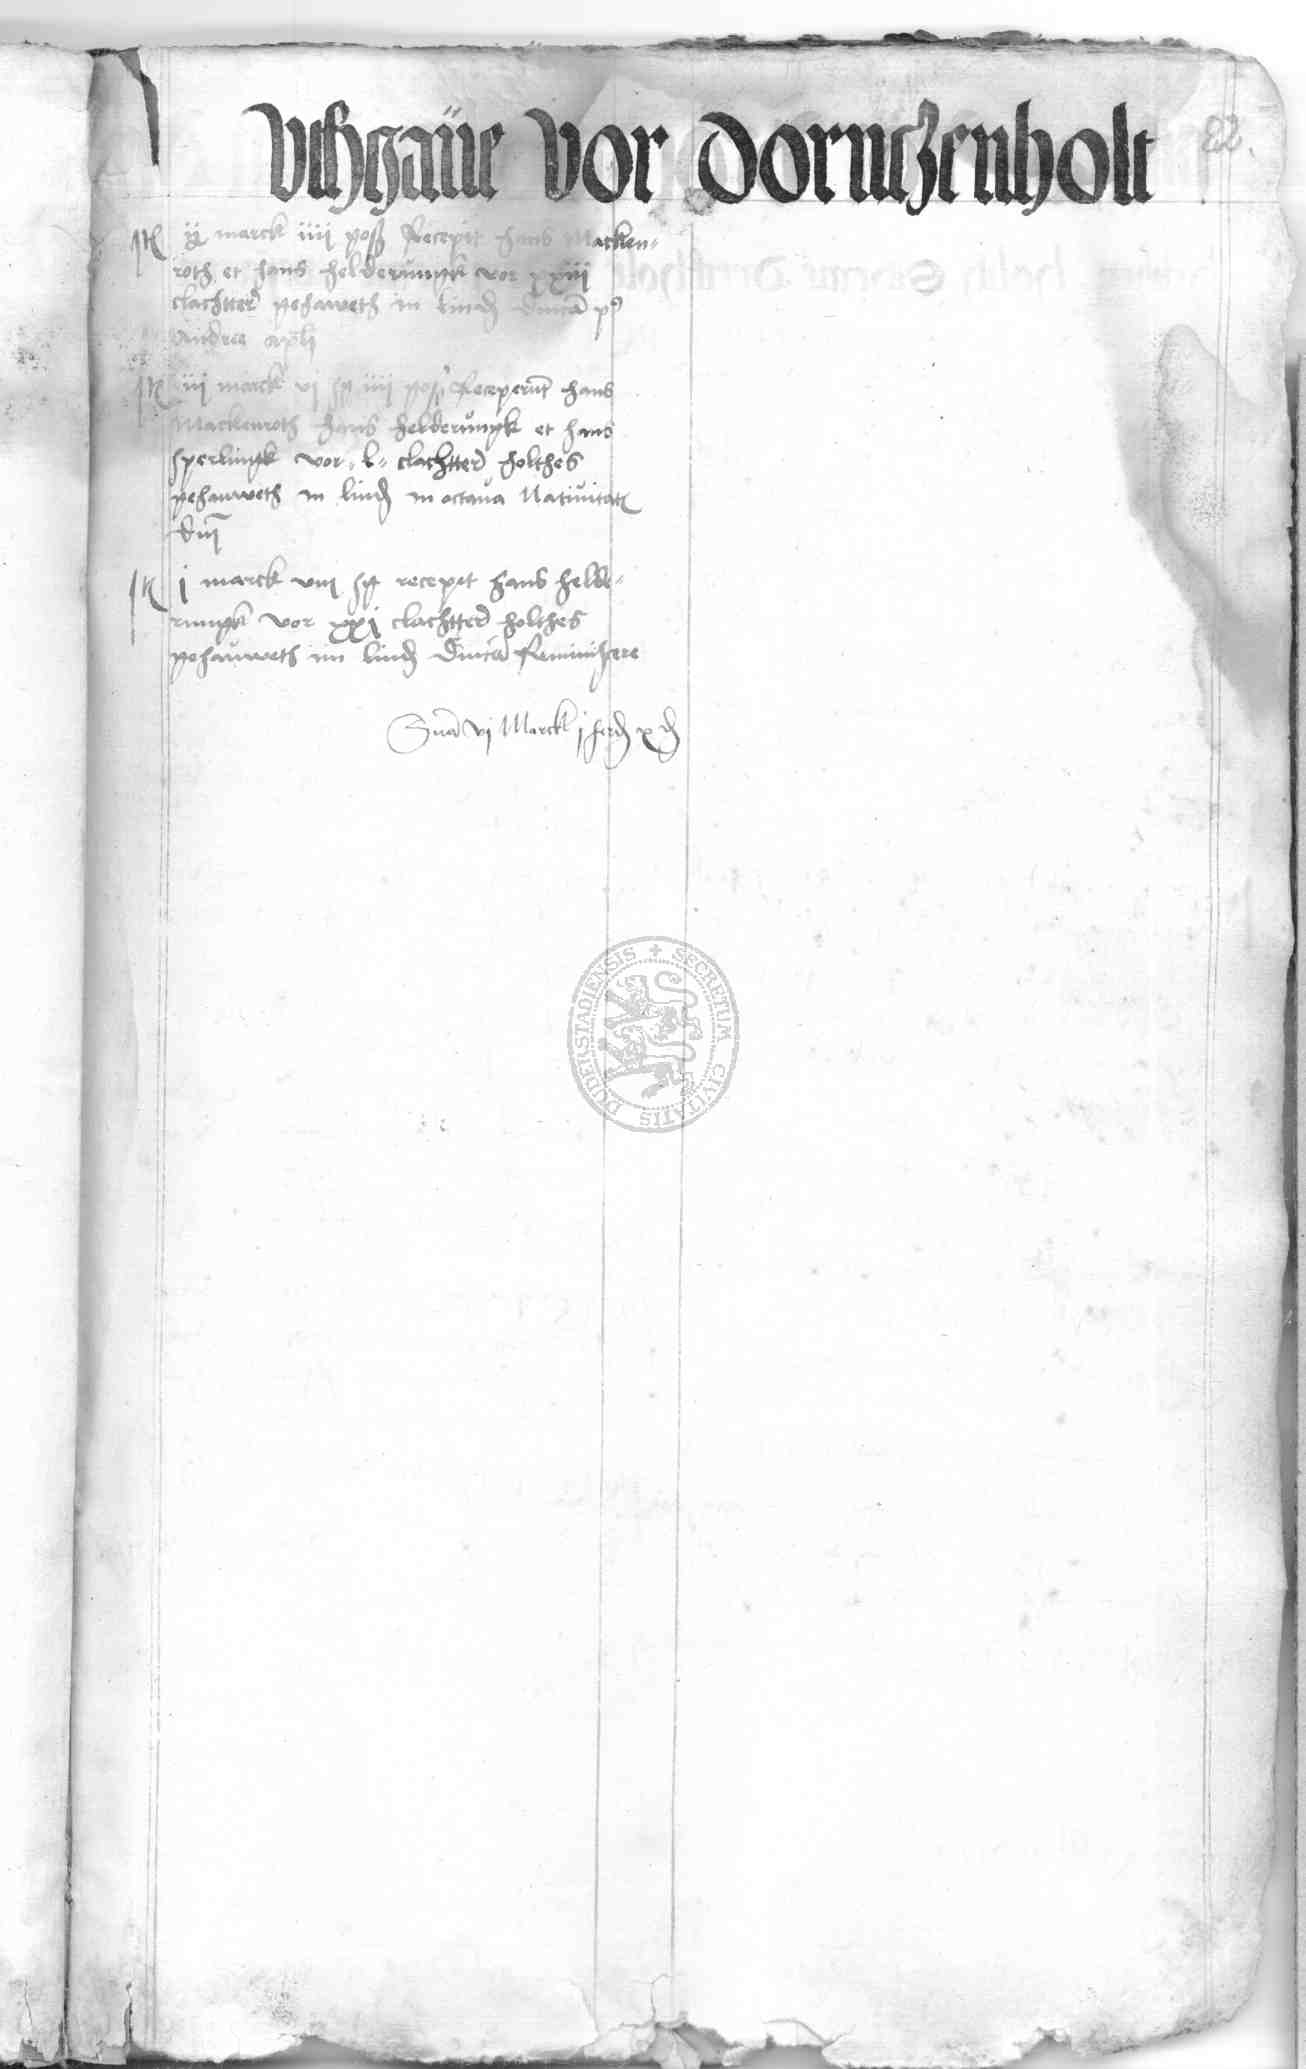 Uthgaüe vor dorntzenholt
82
Itē ij marck iiij poß Recepit hans Macken-
roth et hans helderungk vor xxiij
clachtter gehaweth in lindē dmīca p9
Andree apli
Itē iij marck vi sg iiij poß Receperūt hans
Mackenroth hans helderungk et hans
sperlingk vor · l · clachtter holthes
gehauweth in lindē in octaua Natiuitatē
dm̄
Itē j marck viij sg recepit hans helde-
rungk vor xxj clachtter holthes
gehauweth im lindē dmīca Reminiscere
Sūa vj Marck j ferdē x d
DUDERSTADIENSIS + SECRETUM CIVITATIS